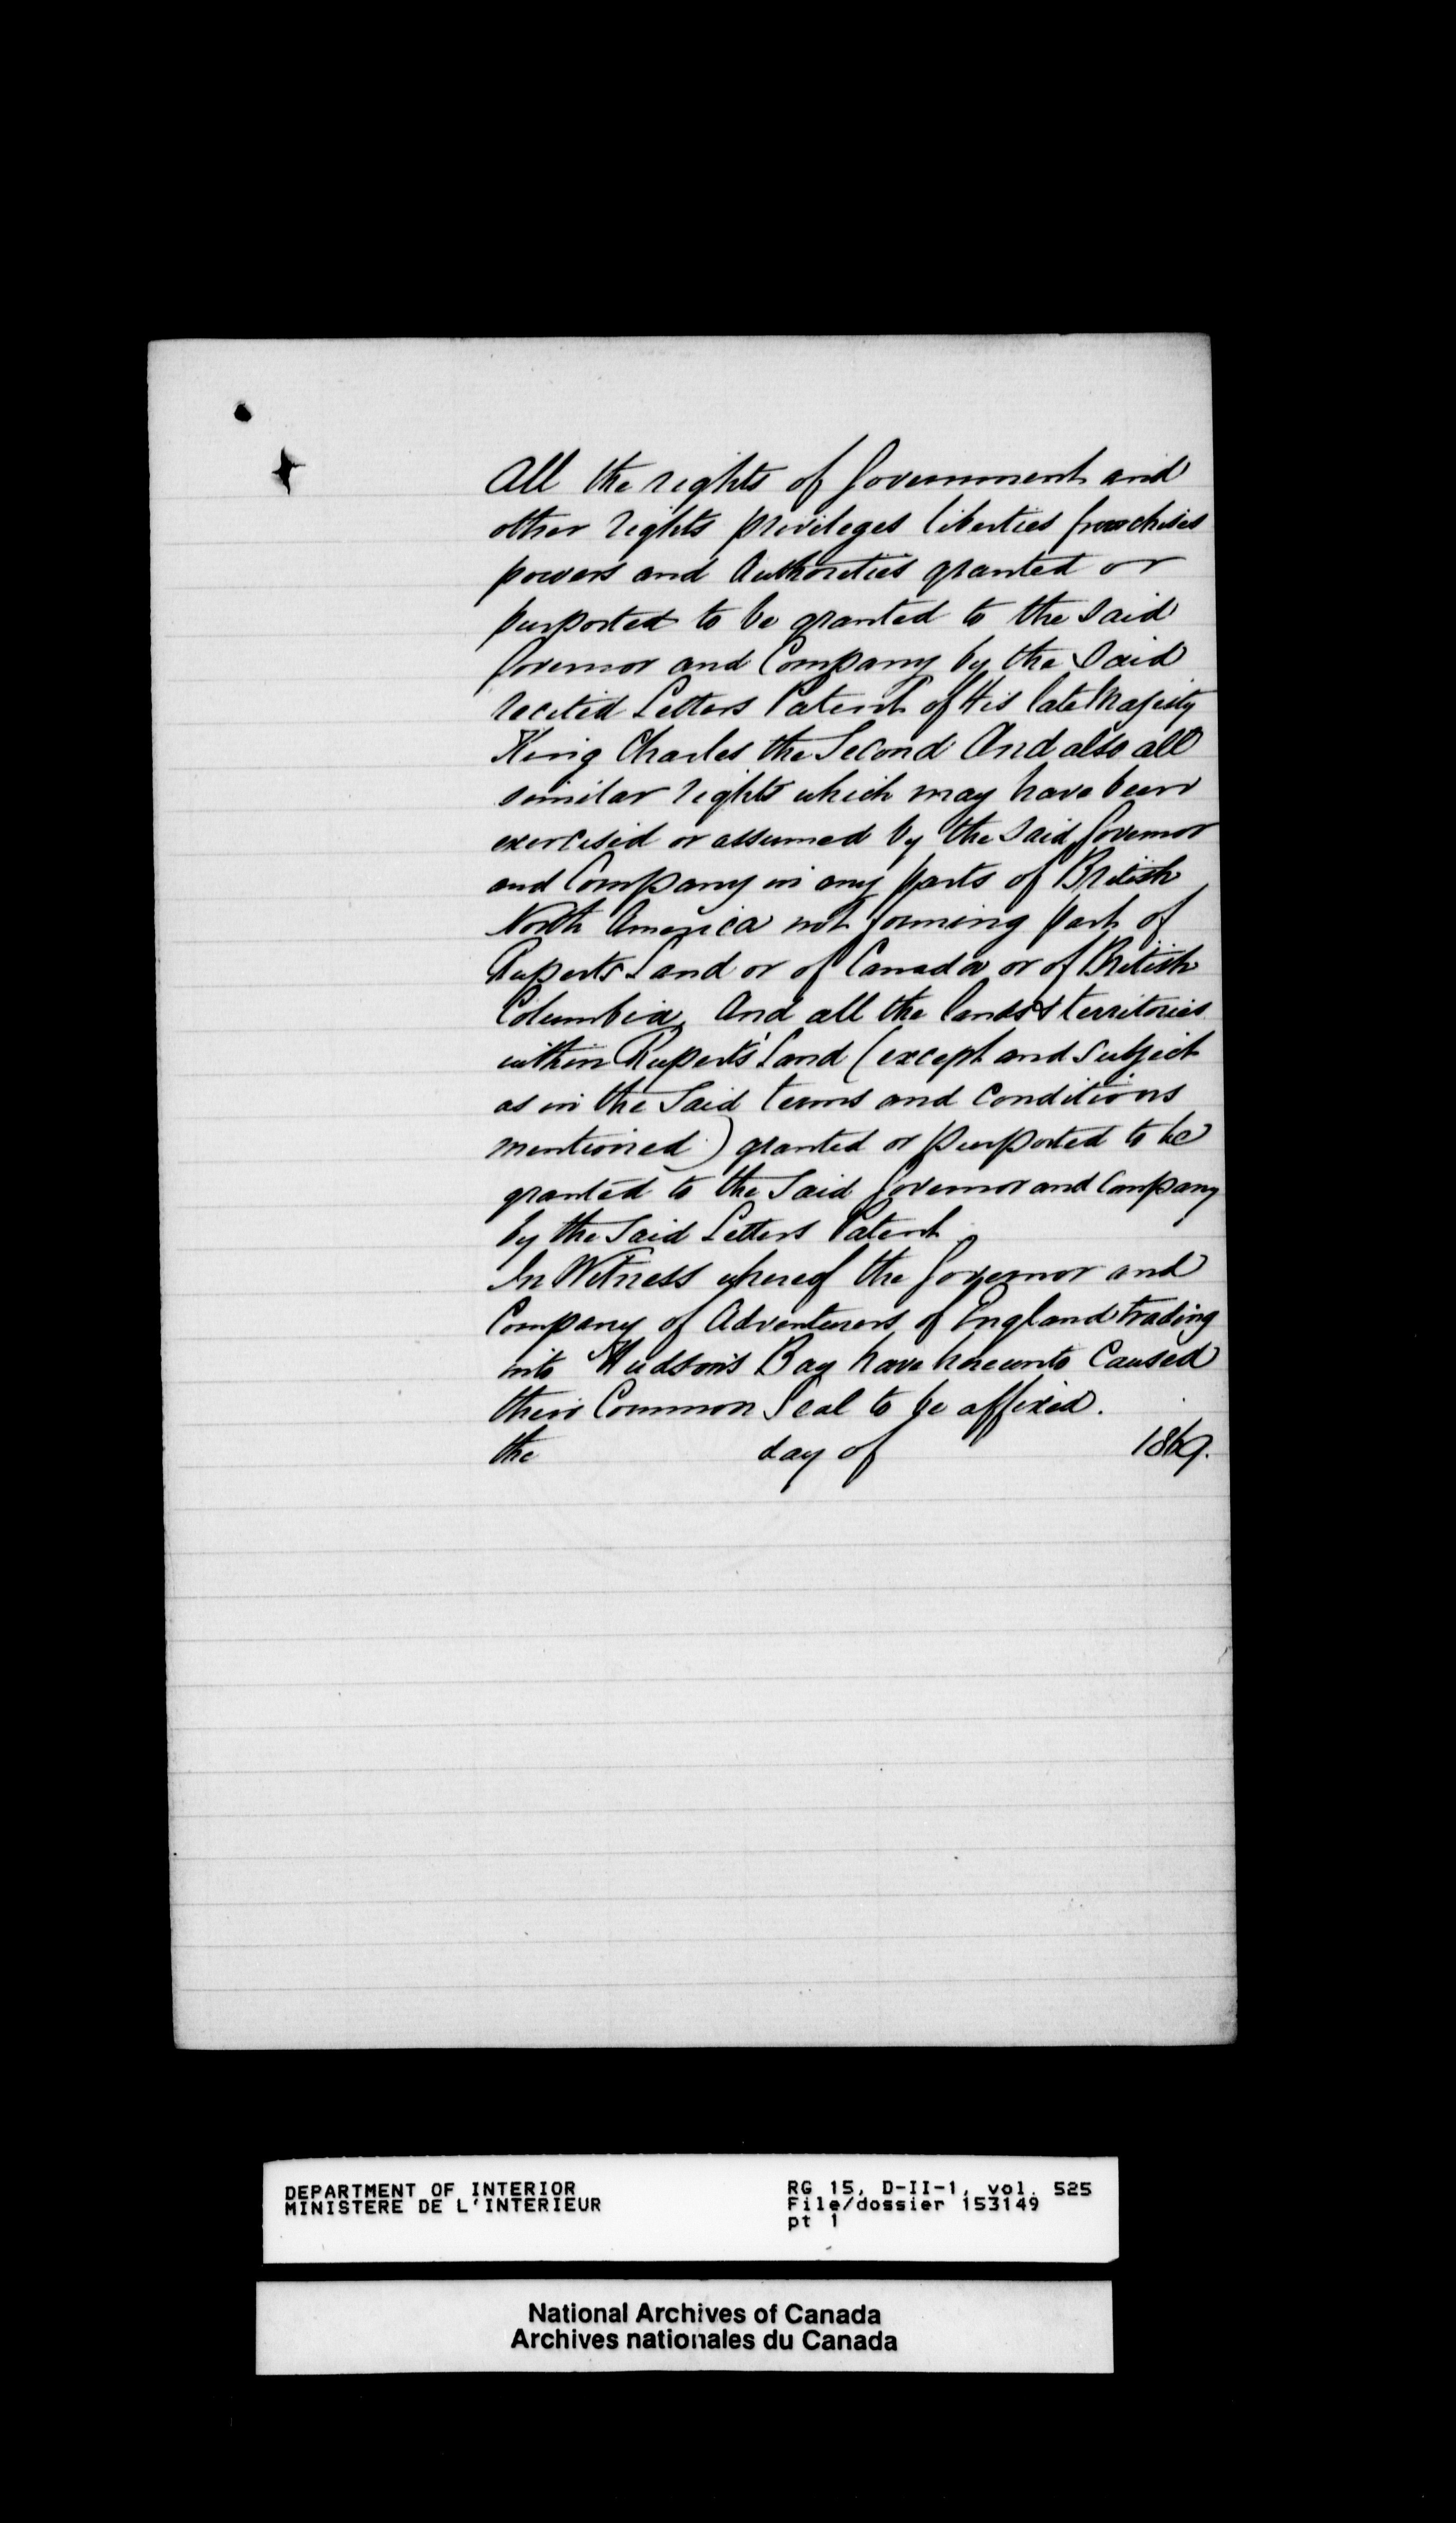 All the rights of Government and
other rights privileges liberties franchises
powers and Authorities granted or
purported to be granted to the said
Governor and Company by the Said
recited Letters Patent of His late Majesty
King Charles the Second And also all
similar rights which may have been
exercised or assumed by the said Governor
and Company in any parts of British
North America not forming part of
Ruperts Land or of Canada or of British
Columbia, And all the lands & territories
within Rupert's Land (except and subject
as in the Said terms and conditions
mentioned) granted or purported to be
granted to the Said Governor and Company
by the Said Letters Patent
In Witness whereof the Governor and
Company of Adventurers of England trading
into Hudson's Bay have hereunto Caused
their Common Seal to be affixed.
the day of 1869.
DEPARTMENT OF INTERIOR
MINISTERE DE L'INTERIEUR
RG 15, D-II-1, vol. 525
File/dossier 153149
pt 1
National Archives of Canada
Archives nationales du Canada